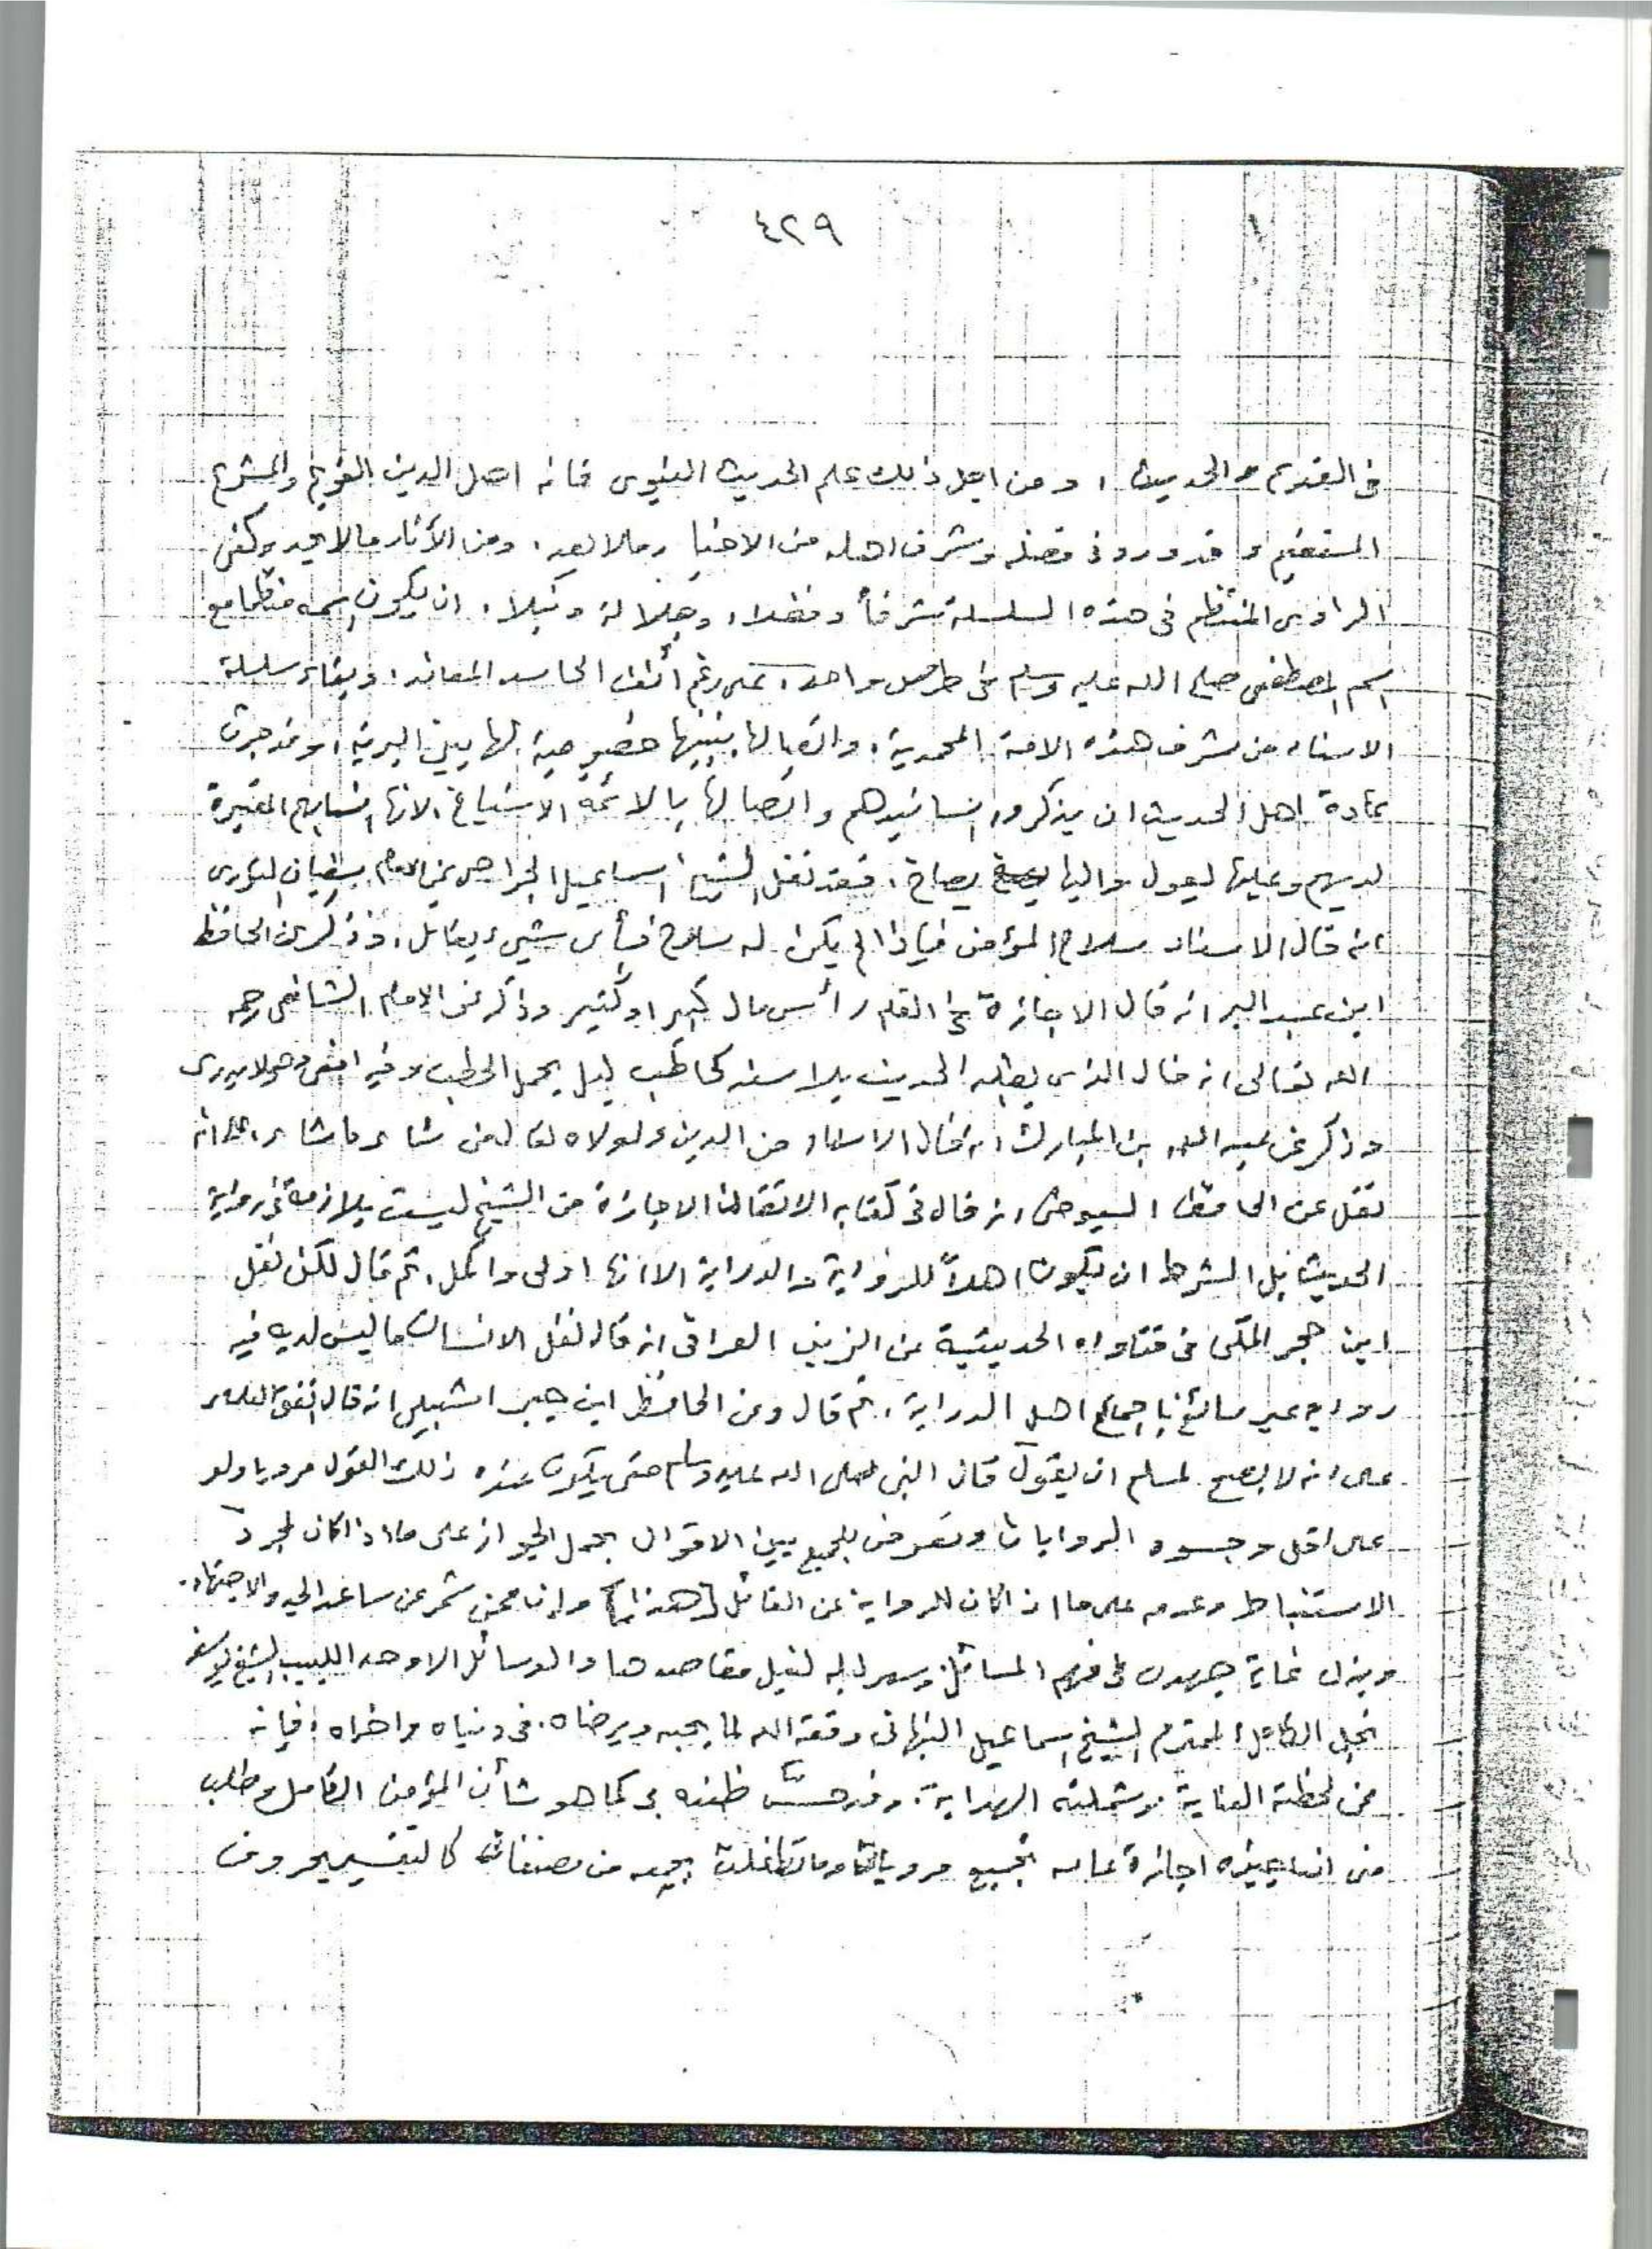 ٤٢٩
فى القديم والحديث ، ومن اجل ذلك علم الحديث النبوى فانه اصل الدين القويم والمشرع
المستقيم وقد ورد فى فضله وشرف اهله من الاخبار مالا يعد ، ومن الآثار مالا يحد وكفى
الراوى المنتظم فى هذه السلسلة شرفاً وفضلا ، وجلالة ونبلا ، ان يكون اسمه منتظما مع
اسم المصطفى صلى الله عليه وسلم فى طرس واحد ، على رغم أنف الحاسد المعاند ، وبقاء سلسلة
الاسناد من شرف هذه الامة المحمدية ، واتصالها بنبيها خصوصية لها بين البرية ، وقد جرت
عادة اهل الحديث ان يذكروا اسانيدهم واتصالها بالائمة الاشياخ ، لانها انسابهم المعتبرة
لديهم وعليها يعول واليها يصاخ ، فقد نقل الشيخ اسماعيل الجراحى عن الامام سفيان الثورى
انه قال الاسناد سلاح المؤمن فاذا لم يكن له سلاح فبأى شيء يقاتل ، وذكر عن الحافظ
ابن عبد البر انه قال الاجازة فى العلم رأس مال كبير او كثير وذكر عن الامام الشافعى رحمه
الله تعالى انه قال الذى يطلب الحديث بلا سند كحاطب ليل يحمل الحطب وفيه افعى وهو لا يدرى
وذكر عن عبد الله بن المبارك انه قال الاسناد من الدين ولولاه لقال من شاء ما شاء ،
نقل عن الحافظ السيوطى انه قال فى كتابه الاتقان الاجازة من الشيخ ليست بلازمة فى رواية
الحديث بل الشرط ان يكون اهلاً للرواية والدراية الا انها اولى واكمل ، ثم قال لكن نقل
ابن حجر المكى فى فتاواه الحديثية عن الزين العراقى انه قال نقل الانسان ما ليس لديه فيه
رواية غير سائغ باجماع اهل الدراية ، ثم قال وعن الحافظ ابن جبير اشبيلى انه قال اتفق العلماء
على انه لا يصح لمسلم ان يقول قال النبى صلى الله عليه وسلم حتى يكون عنده ذلك القول مرويا ولو
على اقل وجوه الروايات وتعرض للجمع بين الاقوال بحمل الجواز على ما اذا كان لمجرد
الاستنباط وعدمه على ما اذا كان للرواية عن القائل [هذا] وان ممن شمر عن ساعد الجد والاجتهاد .
وبذل غاية جهده فى فهم المسائل وسهر ليله لنيل مقاصدها والوسائل الاوحد اللبيب الشيخ يوسف
نجل الكامل المحترم الشيخ اسماعيل النبهانى وفقه الله لما يحبه ويرضاه . فى دنياه واخراه ، فإنه
ممن لحظته العناية وشملته الهداية . وقد حسن ظنه بى كما هو شأن المؤمن الكامل وطلب
منى ان اجيزه اجازة عامة بجميع مروياتى وما تطفلت بجمعه من مصنفات كالتفسير